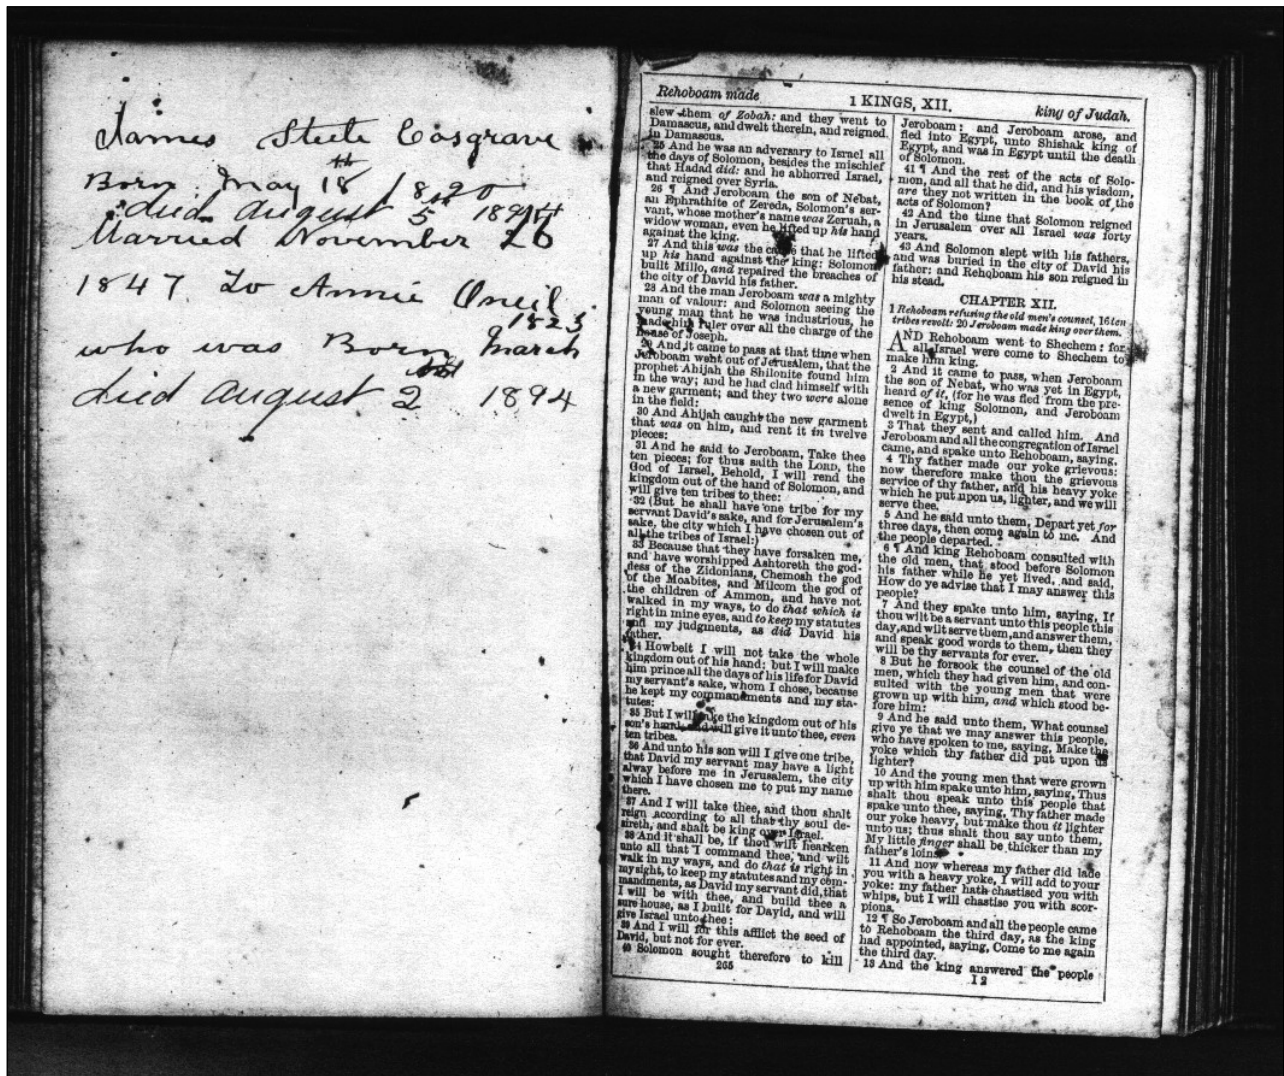 James Steele Cosgrave
Born May 18th 1820
died August 5th 1894
Married November 26
1847 To Annie Oneil
1823
who was Born March
died August 2nd 1894
Rehoboam made
1 KINGS, XII.
king of Judah.
slew them of Zobah: and they went to
Damascus, and dwelt therein, and reigned
in Damascus.
25 And he was an adversary to Israel all
the days of Solomon, besides the mischief
that Hadad did: and he abhorred Israel,
and reigned over Syria.
26 ¶ And Jeroboam the son of Nebat,
an Ephrathite of Zereda, Solomon's ser-
vant, whose mother's name was Zeruah, a
widow woman, even he lifted up his hand
against the king.
27 And this was the cause that he lifted
up his hand against the king: Solomon
built Millo, and repaired the breaches of
the city of David his father.
28 And the man Jeroboam was a mighty
man of valour: and Solomon seeing the
young man that he was industrious, he
made him ruler over all the charge of the
house of Joseph.
29 And it came to pass at that time when
Jeroboam went out of Jerusalem, that the
prophet Ahijah the Shilonite found him
in the way; and he had clad himself with
a new garment; and they two were alone
in the field:
30 And Ahijah caught the new garment
that was on him, and rent it in twelve
pieces:
31 And he said to Jeroboam, Take thee
ten pieces; for thus saith the LORD, the
God of Israel, Behold, I will rend the
kingdom out of the hand of Solomon, and
will give ten tribes to thee:
32 (But he shall have one tribe for my
servant David's sake, and for Jerusalem's
sake, the city which I have chosen out of
all the tribes of Israel:)
33 Because that they have forsaken me,
and have worshipped Ashtoreth the god-
dess of the Zidonians, Chemosh the god
of the Moabites, and Milcom the god of
the children of Ammon, and have not
walked in my ways, to do that which is
right in mine eyes, and to keep my statutes
and my judgments, as did David his
father.
34 Howbeit I will not take the whole
kingdom out of his hand: but I will make
him prince all the days of his life for David
my servant's sake, whom I chose, because
he kept my commandments and my sta-
tutes:
35 But I will take the kingdom out of his
son's hand, and will give it unto thee, even
ten tribes.
36 And unto his son will I give one tribe,
that David my servant may have a light
alway before me in Jerusalem, the city
which I have chosen me to put my name
there.
37 And I will take thee, and thou shalt
reign according to all that thy soul de-
sireth, and shalt be king over Israel.
38 And it shall be, if thou wilt hearken
unto all that I command thee, and wilt
walk in my ways, and do that is right in
my sight, to keep my statutes and my com-
mandments, as David my servant did, that
I will be with thee, and build thee a
sure house, as I built for David, and will
give Israel unto thee:
39 And I will for this afflict the seed of
David, but not for ever.
40 Solomon sought therefore to kill
265
Jeroboam: and Jeroboam arose, and
fled into Egypt, unto Shishak king of
Egypt, and was in Egypt until the death
of Solomon.
41 ¶ And the rest of the acts of Solo-
mon, and all that he did, and his wisdom,
are they not written in the book of the
acts of Solomon?
42 And the time that Solomon reigned
in Jerusalem over all Israel was forty
years.
43 And Solomon slept with his fathers,
and was buried in the city of David his
father: and Rehoboam his son reigned in
his stead.
CHAPTER XII.
1 Rehoboam refusing the old men's counsel, 16 ten
tribes revolt: 20 Jeroboam made king over them.
AND Rehoboam went to Shechem: for
all Israel were come to Shechem to
make him king.
2 And it came to pass, when Jeroboam
the son of Nebat, who was yet in Egypt,
heard of it, (for he was fled from the pre-
sence of king Solomon, and Jeroboam
dwelt in Egypt,)
3 That they sent and called him. And
Jeroboam and all the congregation of Israel
came, and spake unto Rehoboam, saying,
4 Thy father made our yoke grievous:
now therefore make thou the grievous
service of thy father, and his heavy yoke
which he put upon us, lighter, and we will
serve thee.
5 And he said unto them, Depart yet for
three days, then come again to me. And
the people departed.
6 ¶ And king Rehoboam consulted with
the old men, that stood before Solomon
his father while he yet lived, and said,
How do ye advise that I may answer this
people?
7 And they spake unto him, saying, If
thou wilt be a servant unto this people this
day, and wilt serve them, and answer them,
and speak good words to them, then they
will be thy servants for ever.
8 But he forsook the counsel of the old
men, which they had given him, and con-
sulted with the young men that were
grown up with him, and which stood be-
fore him:
9 And he said unto them, What counsel
give ye that we may answer this people,
who have spoken to me, saying, Make the
yoke which thy father did put upon us
lighter?
10 And the young men that were grown
up with him spake unto him, saying, Thus
shalt thou speak unto this people that
spake unto thee, saying, Thy father made
our yoke heavy, but make thou it lighter
unto us; thus shalt thou say unto them,
My little finger shall be thicker than my
father's loins.
11 And now whereas my father did lade
you with a heavy yoke, I will add to your
yoke: my father hath chastised you with
whips, but I will chastise you with scor-
pions.
12 ¶ So Jeroboam and all the people came
to Rehoboam the third day, as the king
had appointed, saying, Come to me again
the third day.
13 And the king answered the people
I 2